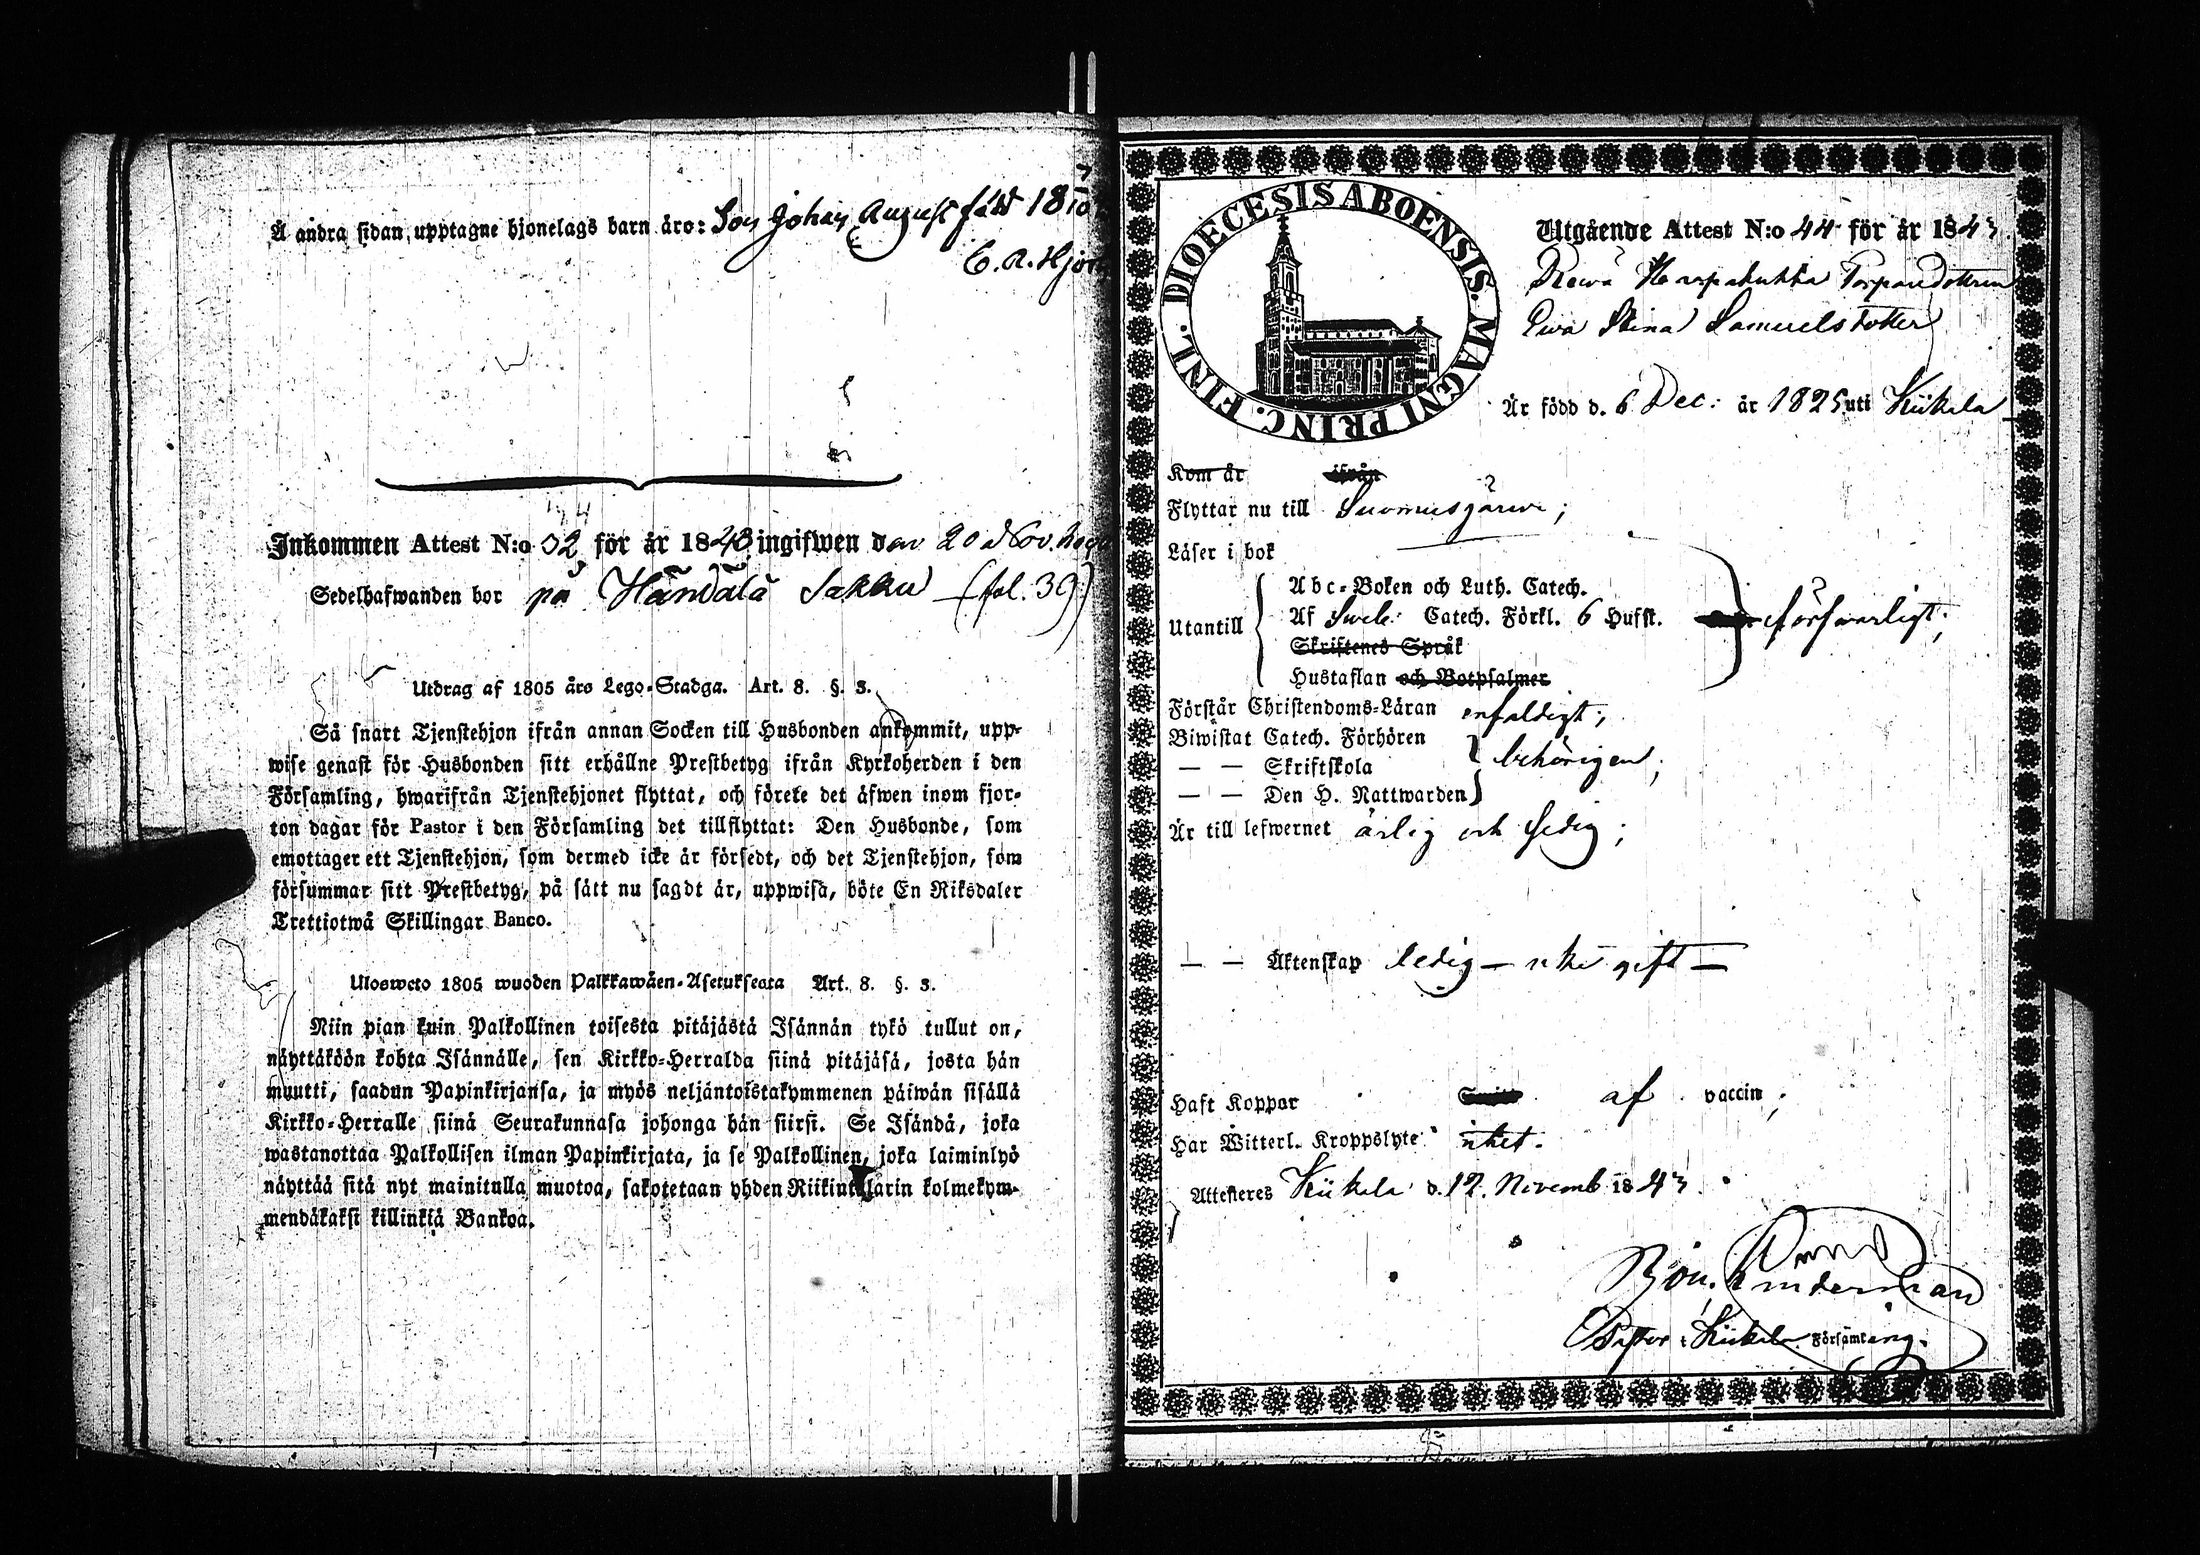 Å andra sidan upptagne hjonelags barn äro: Son Johan August född 18
Inkommen Attest N:o 32 för år 1843 ingifwen den 20 Nov.
Sedelhafwanden bor på Händälä Sakku (fol. 39)
Utdrag af 1805 års Lego-Stadga. Art. 8. §. 3.
Så snart Tjenstehjon ifrån annan Socken till Husbonden ankommit, upp-
wise genast för Husbonden sitt erhållne Prestbetyg ifrån Kyrkoherden i den
Församling, hwarifrån Tjenstehjonet flyttat, och förete det äfwen inom fjor-
ton dagar för Pastor i den Församling det tillflyttat: Den Husbonde, som
emottager ett Tjenstehjon, som dermed icke är försedt, och det Tjenstehjon, som
försummar sitt Prestbetyg, på sätt nu sagdt är, uppwisa, böte En Riksdaler
Trettiotwå Skillingar Banco.
Ulosweto 1805 wuoden Palkkawäen-Asetuksesta Art. 8. §. 3.
Niin pian kuin Palkollinen toisesta pitäjästä Isännän tykö tullut on,
näyttäköön kohta Isännälle, sen Kirkko-Herralda siinä pitäjäsä, josta hän
muutti, saadun Papinkirjansa, ja myös neljäntoistakymmenen päiwän sisällä
Kirkko-Herralle siinä Seurakunnasa johonga hän siirsi. Se Isändä, joka
wastanottaa Palkollisen ilman Papinkirjata, ja se Palkollinen, joka laiminlyö
näyttää sitä nyt mainitulla muotoa, sakotetaan yhden Riikintalarin kolmekym-
mendäkaksi killinkiä Bankoa.
DIOECESIS ABOENSIS. MAGNI PRINC. FINL.
Utgående Attest N:o 44 för år 1843.
Torparedottren
Ewa Stina Samuelsdotter
Är född d. 6 Dec: år 1825 uti Kiikala
Kom år ifrån
Flyttar nu till Suomusjärwi;
Läser i bok
Utantill
Abc-Boken och Luth. Catech.
Af Sweb. Catech. Förkl. 6 Hufst. försvarligt;
Skriftenes Språk
Hustaflan och Botpsalmer
Förstår Christendoms-Läran enfaldigt;
Biwistat Catech. Förhören
— — Skriftskola behörigen;
— — Den H. Nattwarden
Är till lefwernet ärlig och sedig;
— — Äktenskap ledig — icke gift —
Haft Koppor af vaccin;
Har Witterl. Kroppslyte intet.
Attesteres Kiikala d. 12. Novemb 1843.
Pastor i Kiikala Församling.